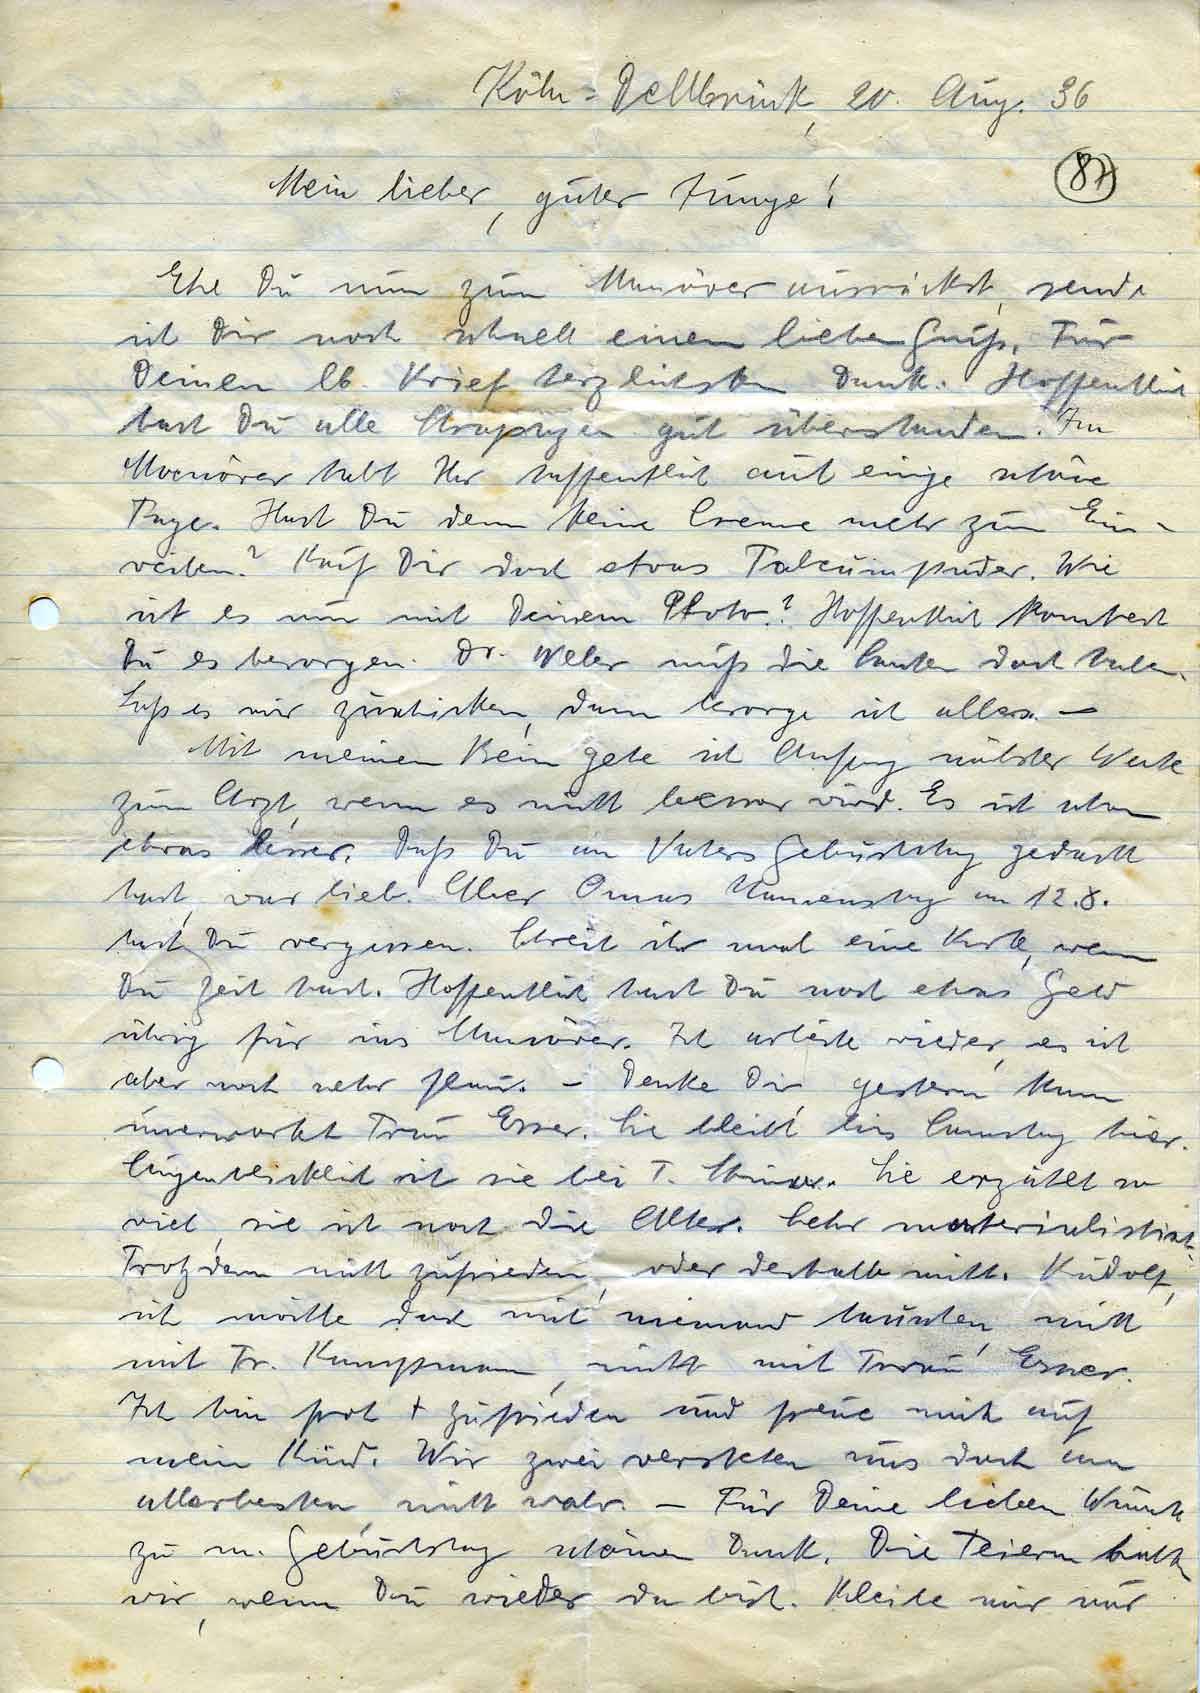 Köln-Dellbrück, 20. Aug. 36
87
Mein lieber, guter Junge!
Ehe Du nun zum Manöver ausrückst, sende
ich Dir noch schnell einen lieben Gruß. Für
Deinen lb. Brief herzlichsten Dank. Hoffentlich
hast Du alle Strapazen gut überstanden. Im
Manöver habt Ihr hoffentlich auch einige schöne
Tage. Hast Du denn keine Creme mehr zum Ein-
reiben? Kauf Dir doch etwas Talcumpuder. Wie
ist es nun mit Deinem Photo? Hoffentlich konntest
Du es besorgen. Dr. Weler muß die Sachen doch haben.
Laß es mir zuschicken, dann besorge ich alles. —
Mit meinem Bein gehe ich Anfang nächster Woche
zum Arzt, wenn es nicht besser wird. Es ist schon
etwas besser. Daß Du an Vaters Geburtstag gedacht
hast, war lieb. Aber Omas Namenstag am 12.8.
hast Du vergessen. Schreib ihr mal eine Karte, wenn
Du Zeit hast. Hoffentlich hast Du noch etwas Geld
übrig für ins Manöver. Ich arbeite wieder, es ist
aber noch sehr flau. — Denke Dir, gestern kam
unerwartet Frau Esser. Sie bleibt bis Samstag hier.
Augenblicklich ist sie bei T. Sie erzählt so
viel, sie ist noch die Alte. Sehr materialistisch.
Trotzdem nicht zufrieden, oder deshalb nicht. Rudolf,
ich möchte doch mit niemand tauschen, nicht
mit Fr. Kampmann, nicht mit Frau Esser.
Ich bin froh + zufrieden und freue mich auf
mein Kind. Wir zwei verstehen uns doch am
allerbesten, nicht wahr. — Für Deine lieben Wünsche
zu m. Geburtstag schönen Dank. Die Feiern
wir, wenn Du wieder da bist. Bleibe mir nur